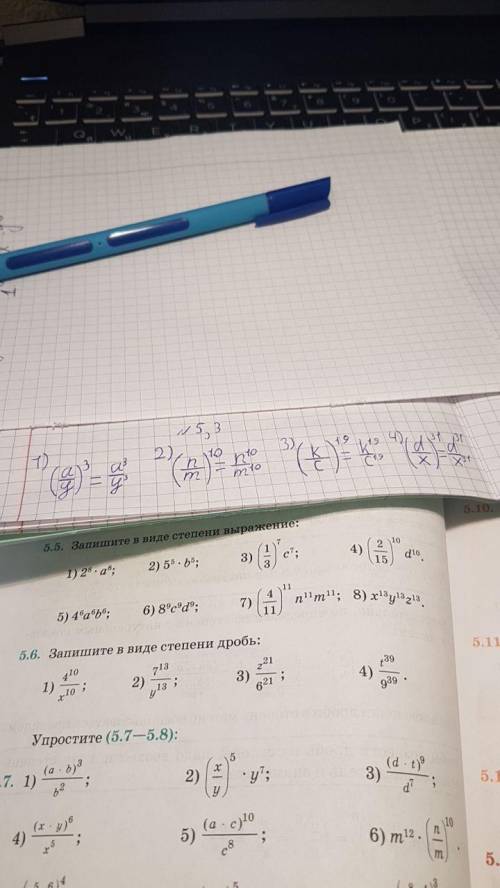 Q W E R T Y U
№ 5,3
1) (a/y)³ = a³/y³ 2) (n/m)¹⁰ = n¹⁰/m¹⁰ 3) (k/c)¹⁹ = k¹⁹/c¹⁹ 4) (d/x)³¹ = d³¹/x³¹
5.10.
5.5. Запишите в виде степени выражение:
1) 2⁸ · a⁸; 2) 5⁵ · b⁵; 3) (1/3)⁷ c⁷; 4) (2/15)¹⁰ d¹⁰.
5) 4⁶a⁶b⁶; 6) 8⁹c⁹d⁹; 7) (4/11)¹¹ n¹¹m¹¹; 8) x¹³y¹³z¹³.
5.6. Запишите в виде степени дробь:
5.11
1) 4¹⁰/x¹⁰; 2) 7¹³/y¹³; 3) z²¹/6²¹; 4) t³⁹/9³⁹.
Упростите (5.7—5.8):
.7. 1) (a · b)³/b²; 2) (x/y)⁵ · y⁷; 3) (d · t)⁹/d⁷;
5.1
4) (x · y)⁶/x⁵; 5) (a · c)¹⁰/c⁸; 6) m¹² · (n/m)¹⁰.
5.